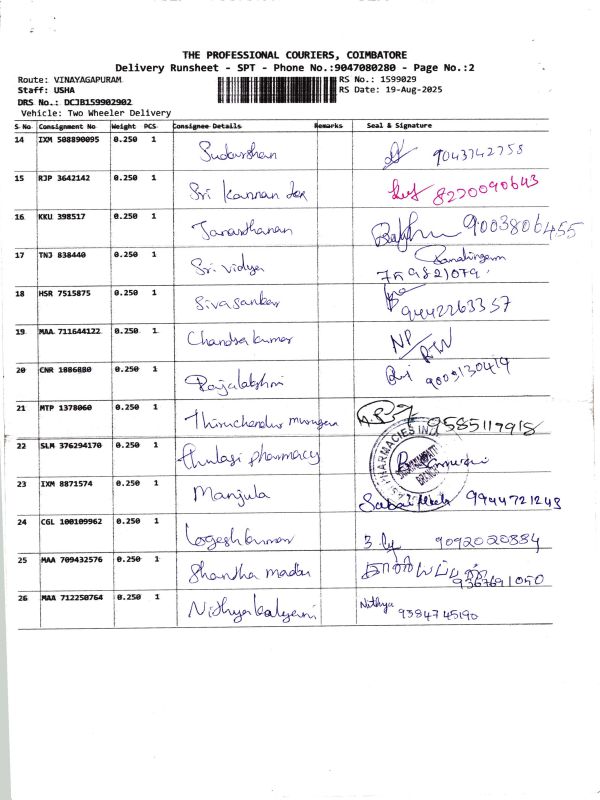 THE PROFESSIONAL COURIERS, COIMBATORE
Delivery Runsheet - SPT - Phone No.:9047080280 - Page No.:2
Route: VINAYAGAPURAM RS No.: 1599029
Staff: USHA RS Date: 19-Aug-2025
DRS No.: DCJB159902902
Vehicle: Two Wheeler Delivery
S No Consignment No Weight PCS Consignee Details Remarks Seal & Signature
14 IXM 508890095 0.250 1 Sudarshan 9043742758
15 RJP 3642142 0.250 1 Sri kannan tex 8220090643
16 KKU 398517 0.250 1 Janarthanan 9003806455
17 TNJ 838440 0.250 1 Sri vidya Ramalingam
759821079
18 HSR 7515875 0.250 1 Sivasankar 9442263357
19 MAA 711644122 0.250 1 Chandra kumar NP/RTN
20 CNR 1886880 0.250 1 Rajalakshmi 9003130414
21 MTP 1378060 0.250 1 Thiruchendur murugan 9585117915
22 SLM 376294170 0.250 1 thulasi pharmacy
23 IXM 8871574 0.250 1 Manjula 9944721243
24 CGL 100109962 0.250 1 Logeshkumar 9092020334
25 MAA 709432576 0.250 1 Shantha madan
9367691050
26 MAA 712250764 0.250 1 Nithyakalyani Nithya
9384745190